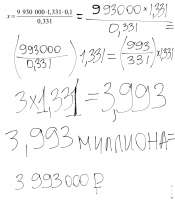 x = 9 930 000·1,331·0,1 / 0,331 = 993000×1,331 / 0,331 =
(993000 / 0,331)·1,331 = (993 / 331)×1,331
3×1,331 = 3,993
3,993 миллиона=
3 993000 ₽